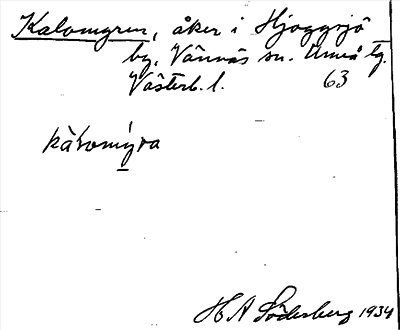 Kalomyren, åker i Hjoggsjö
by, Vännäs sn. Umeå tg.
Västerb. l. 63
kālomýra
H A Söderberg 1934